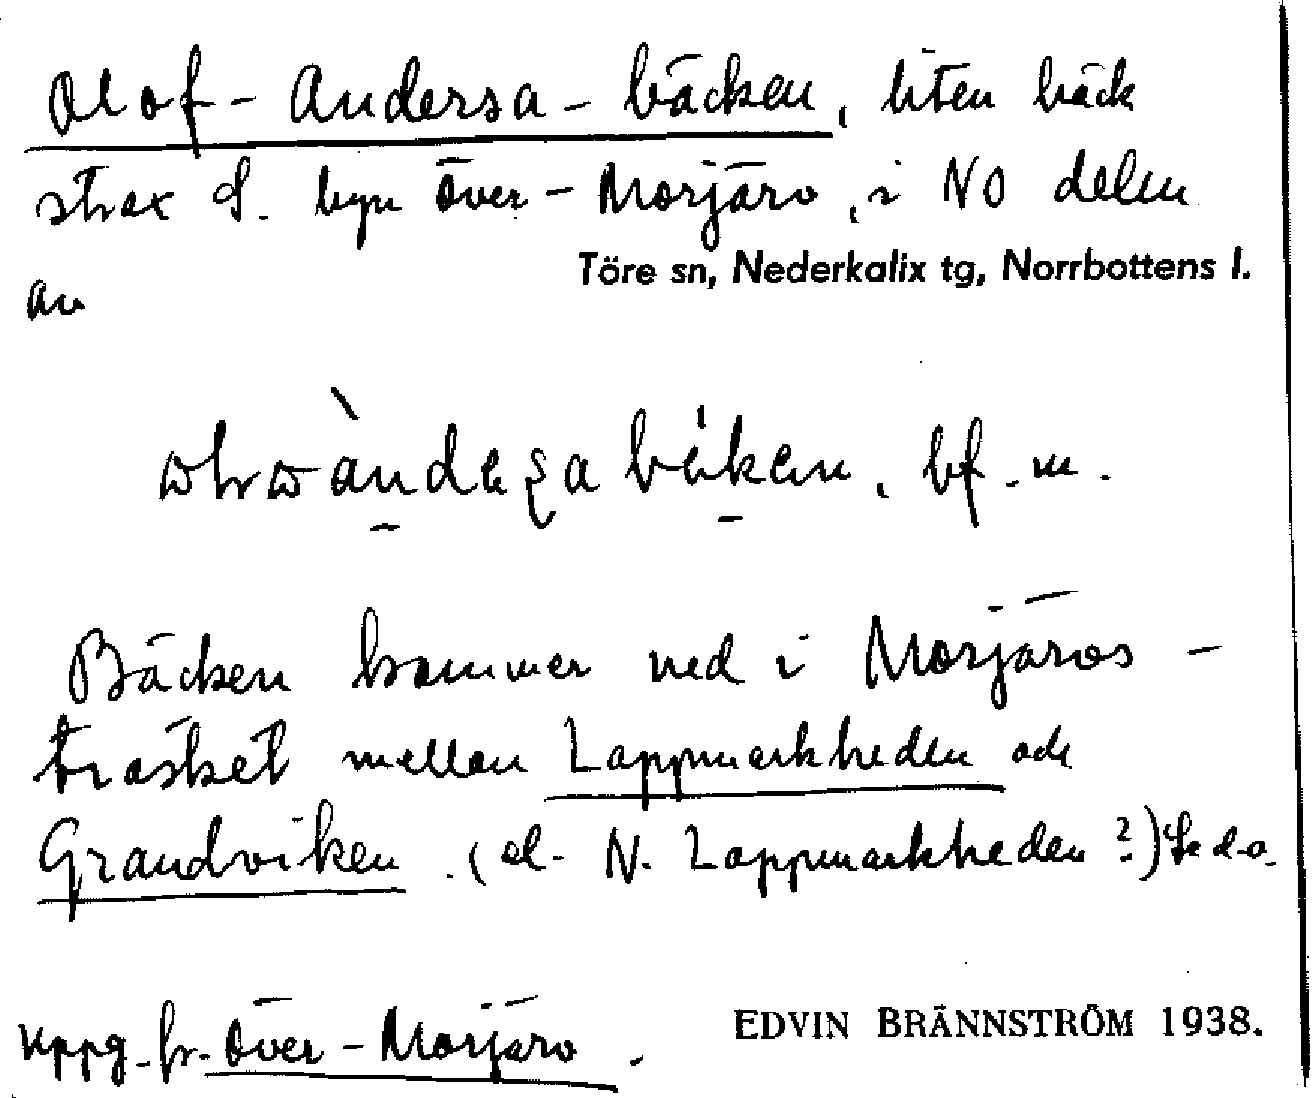 Olof-Andersa-bäcken, liten bäck
strax S. byn Över-Morjärv, i NO delen
av
Töre sn, Nederkalix tg, Norrbottens l.
bf. m.
Bäcken kommer ned i Morjärvs-
träsket mellan Lappmarkheden och
Grandviken. (el. N. Lappmarkheden?) Se d.o.
Uppg. fr. Över-Morjärv.
EDVIN BRÄNNSTRÖM 1938.